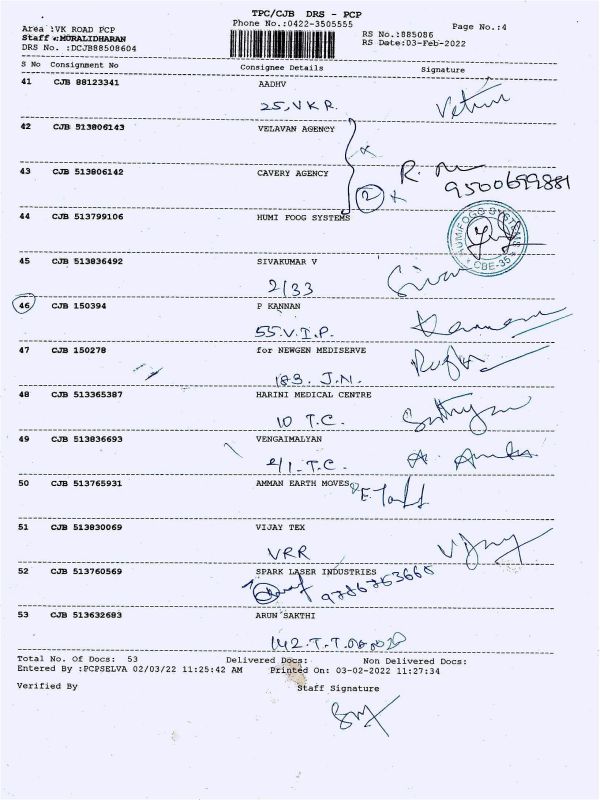 TPC/CJB DRS - PCP
Phone No.:0422-3505555
Page No.:4
Area :VK ROAD PCP
Staff :MURALIDHARAN
DRS No. :DCJB88508604
RS No.:885086
RS Date:03-Feb-2022
S No Consignment No Consignee Details Signature
41 CJB 88123341 AADHV
25, V K R.
42 CJB 513806143 VELAVAN AGENCY
43 CJB 513806142 CAVERY AGENCY
2
9500699881
44 CJB 513799106 HUMI FOOG SYSTEMS
HUMIFOGG SYSTEMS
CBE-35
45 CJB 513836492 SIVAKUMAR V
2/33
46 CJB 150394 P KANNAN
55.V.I.P.
47 CJB 150278 for NEWGEN MEDISERVE
183. J.N.
48 CJB 513365387 HARINI MEDICAL CENTRE
10 T.C.
49 CJB 513836693 VENGAIMALYAN
2/1. T.C.
50 CJB 513765931 AMMAN EARTH MOVES
51 CJB 513830069 VIJAY TEX
VRR
Vijay
52 CJB 513760569 SPARK LASER INDUSTRIES
53 CJB 513632683 ARUN SAKTHI
Total No. Of Docs: 53 Delivered Docs: Non Delivered Docs:
Entered By :PCPSELVA 02/03/22 11:25:42 AM Printed On: 03-02-2022 11:27:34
Verified By Staff Signature